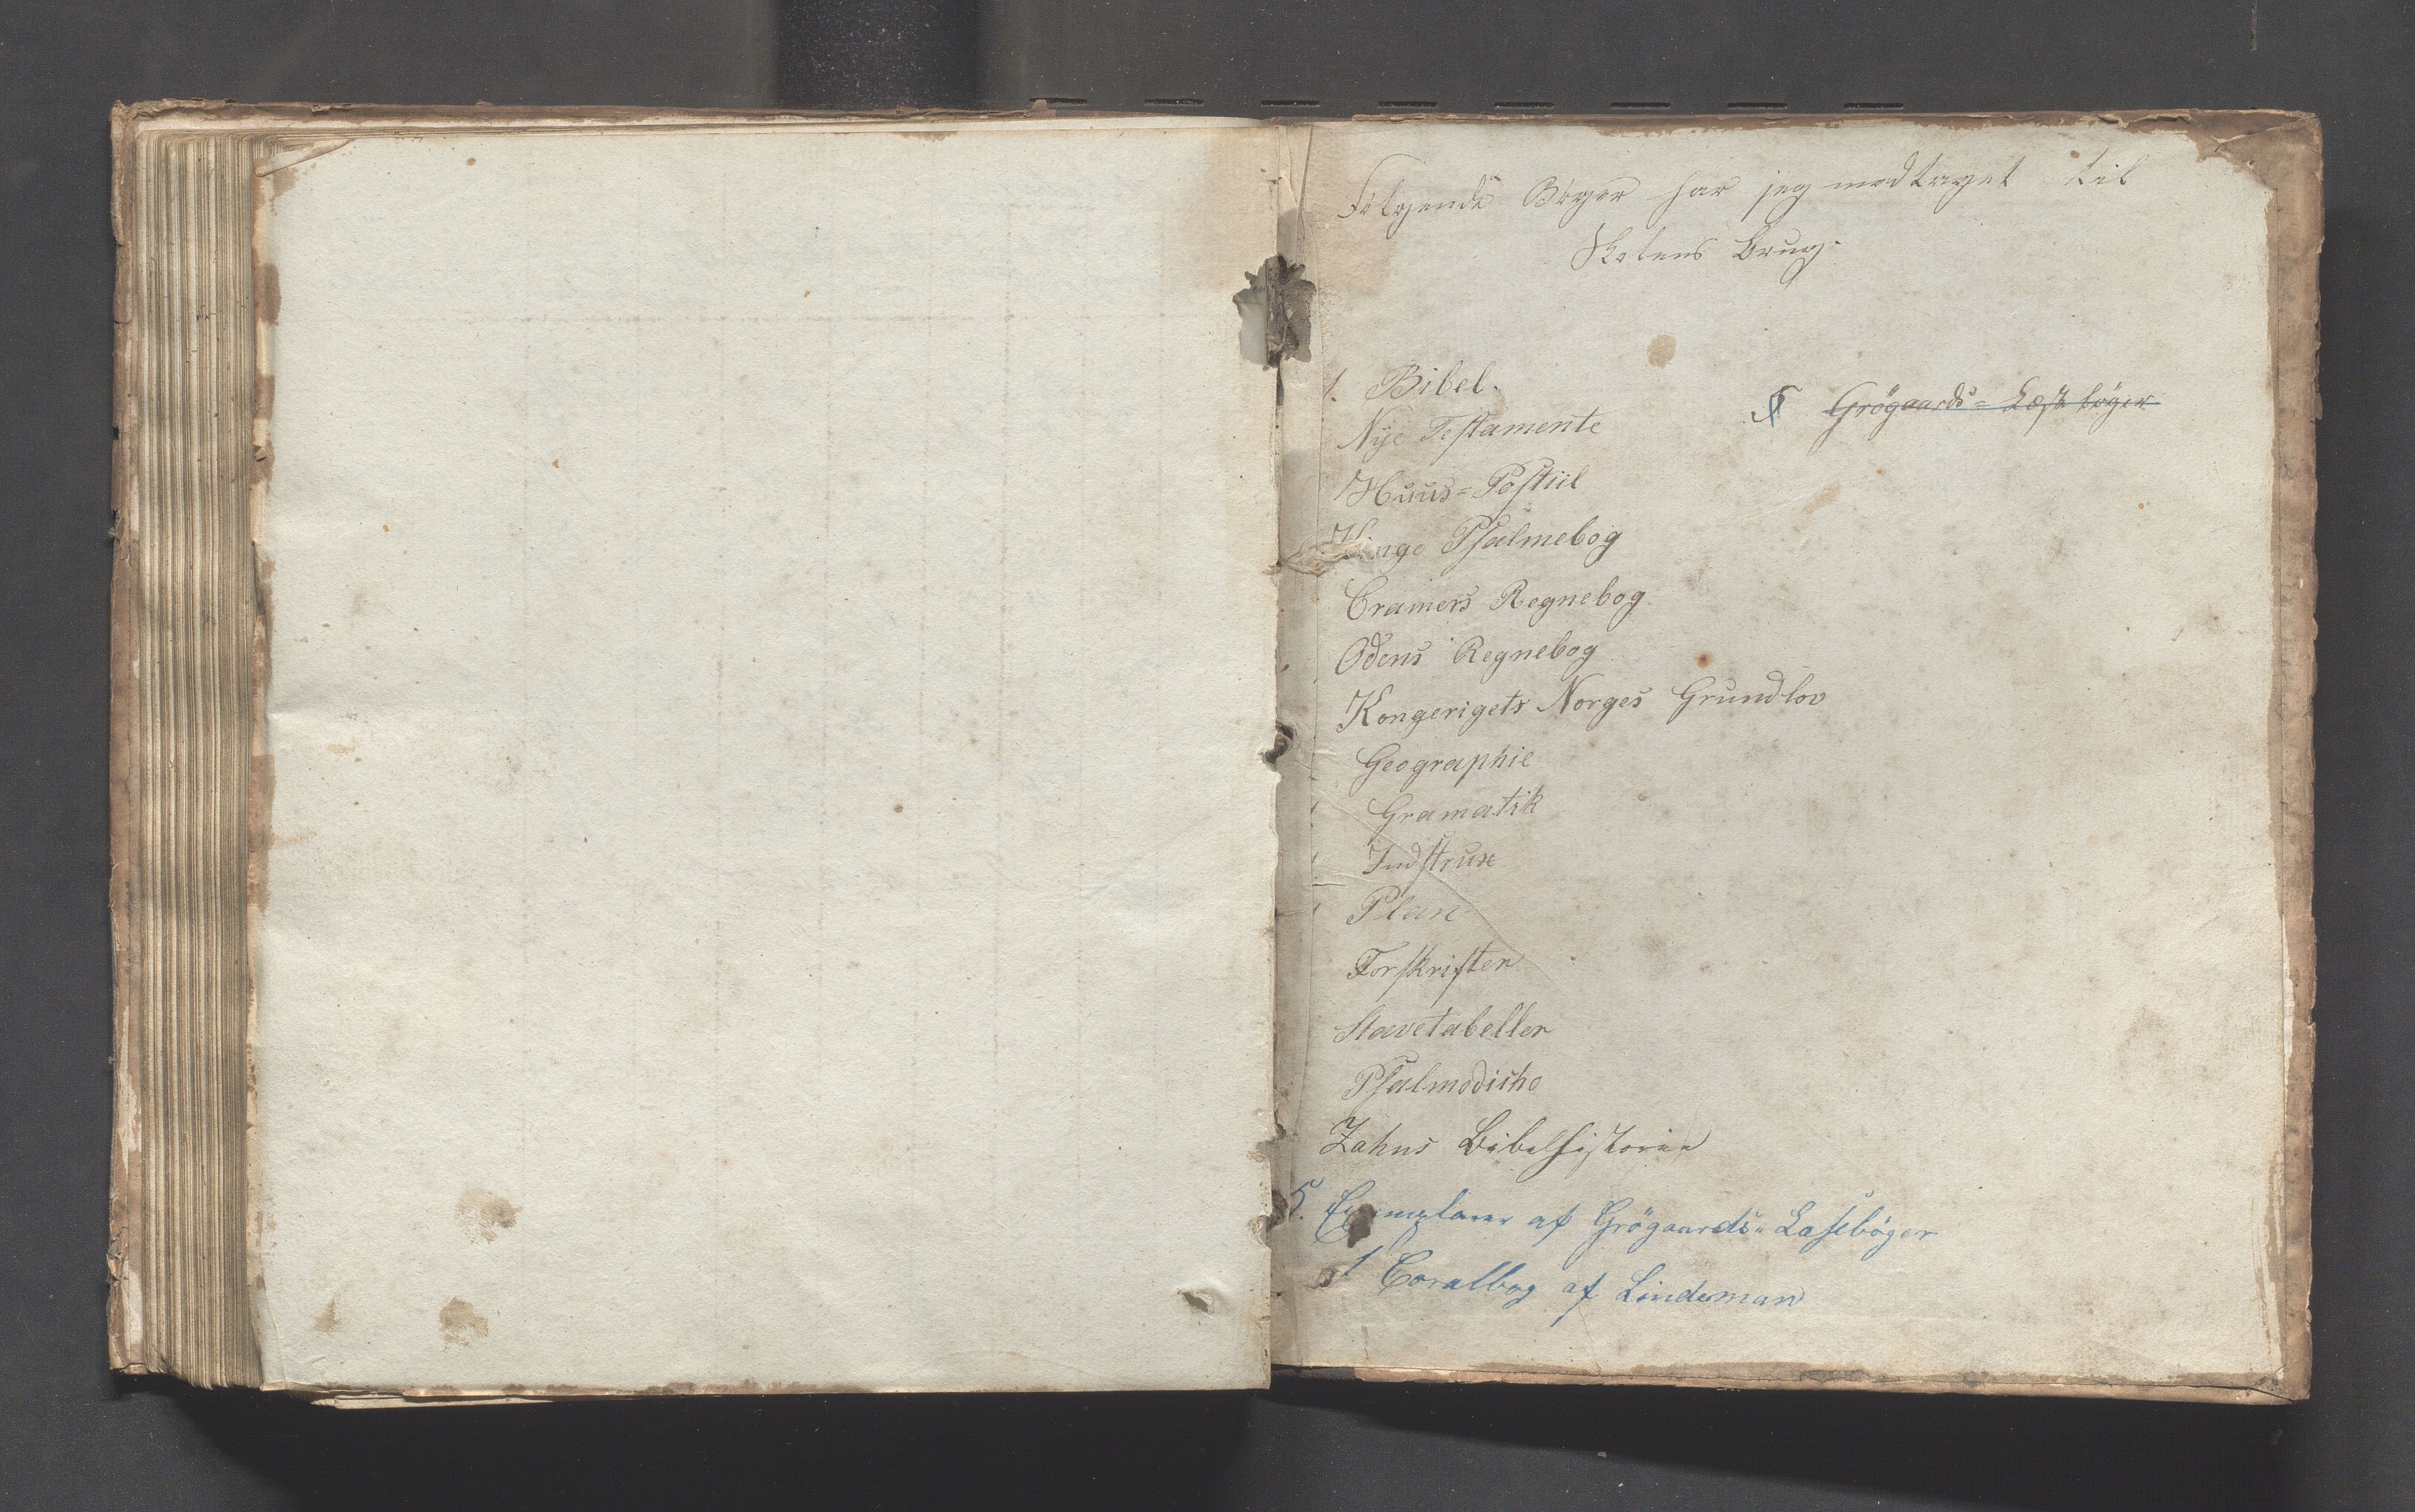 Følgende Bøger har jeg modtaget til
Skolens Brug.
1. Bibel.
Nye Testamente
Huus-Postiil
Kingo Psalmebog
Cramers Regnebog
Odens Regnebog
Kongerigets Norges Grundlov
Geographie
1 Gramatik
1 Indstrux
1 Plan
Forskrifter
Stavetabeller
Psalmodicho
Zahns Bibelhistorie
5. Exemplarer af Grögaards- Læsebøger
1 Coralbog af Lindeman
5 Grögaards- Læsebøger